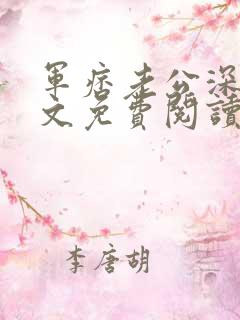 軍痞老公深
文免費閱讀
李唐胡